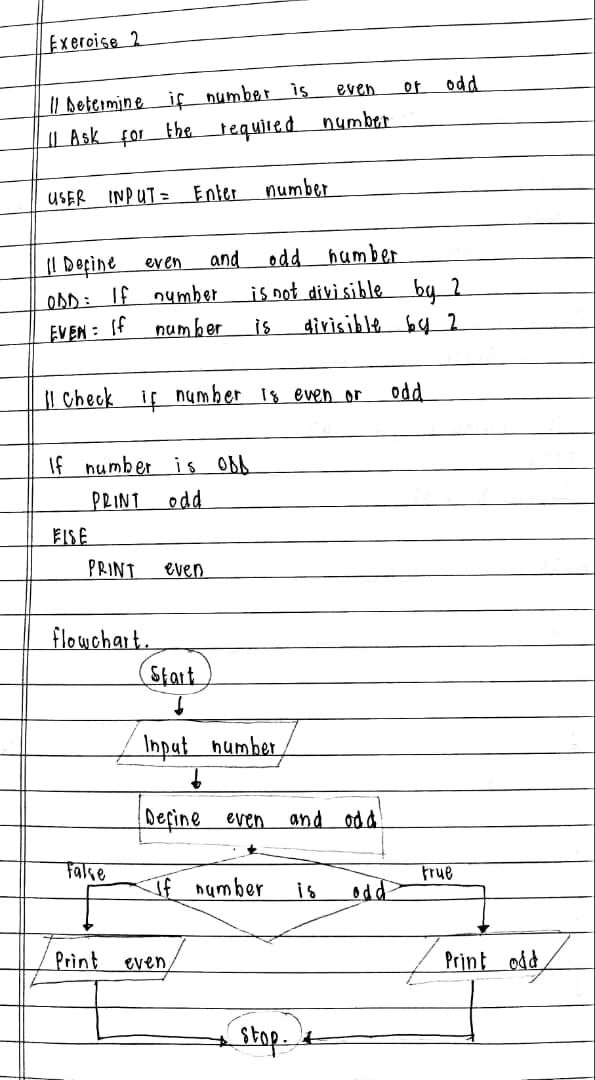 Exercise 2
// Determine if number is even or odd
// Ask for the required number
USER INPUT = Enter number
// Define even and odd number
ODD: If number is not divisible by 2
EVEN: If number is divisible by 2
// Check if number is even or odd
If number is ODD
PRINT odd
ELSE
PRINT even
flowchart.
Start
Input number
Define even and odd
False
true
If number is odd
Print even
Print odd
Stop.